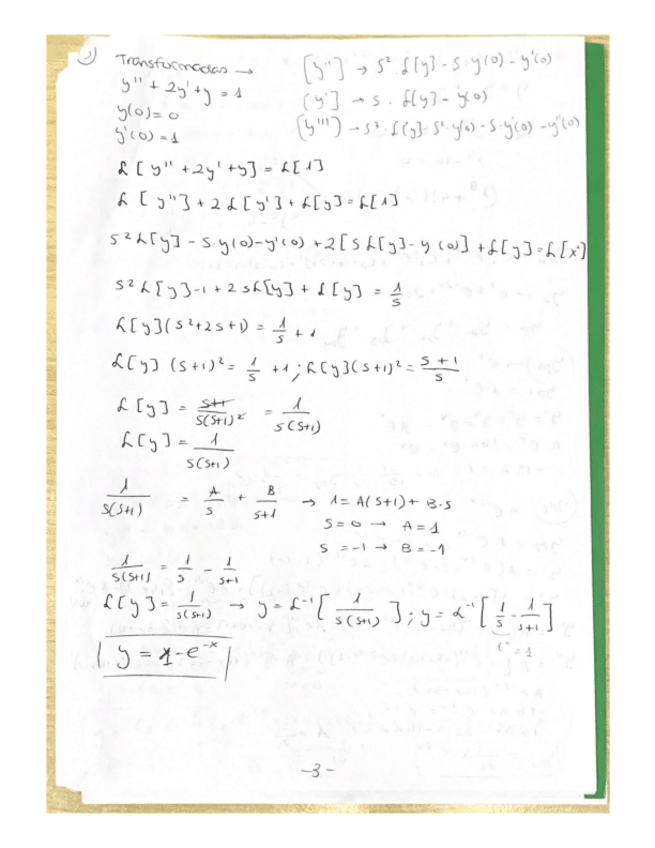 Transformadas → [y''] → s² · ℒ[y] - s · y(0) - y'(0)
y'' + 2y' + y = 1
[y'] → s · ℒ[y] - y(0)
y(0) = 0
[y'''] → s³ · ℒ[y] - s² · y(0) - s · y'(0) - y''(0)
y'(0) = 1
ℒ[y'' + 2y' + y] = ℒ[1]
ℒ[y''] + 2ℒ[y'] + ℒ[y] = ℒ[1]
s²ℒ[y] - s · y(0) - y'(0) + 2[sℒ[y] - y(0)] + ℒ[y] = ℒ[x⁰]
s²ℒ[y] - 1 + 2sℒ[y] + ℒ[y] = 1/s
ℒ[y](s² + 2s + 1) = 1/s + 1
ℒ[y](s+1)² = 1/s + 1; ℒ[y](s+1)² = s+1/s
ℒ[y] = s+1/s(s+1)² = 1/s(s+1)
ℒ[y] = 1/s(s+1)
1/s(s+1) = A/s + B/s+1 → 1 = A(s+1) + B·s
s = 0 → A = 1
s = -1 → B = -1
1/s(s+1) = 1/s - 1/s+1
ℒ[y] = 1/s(s+1) → y = ℒ⁻¹[1/s(s+1)]; y = ℒ⁻¹[1/s - 1/s+1]
y = 1 - e⁻ˣ
-3-